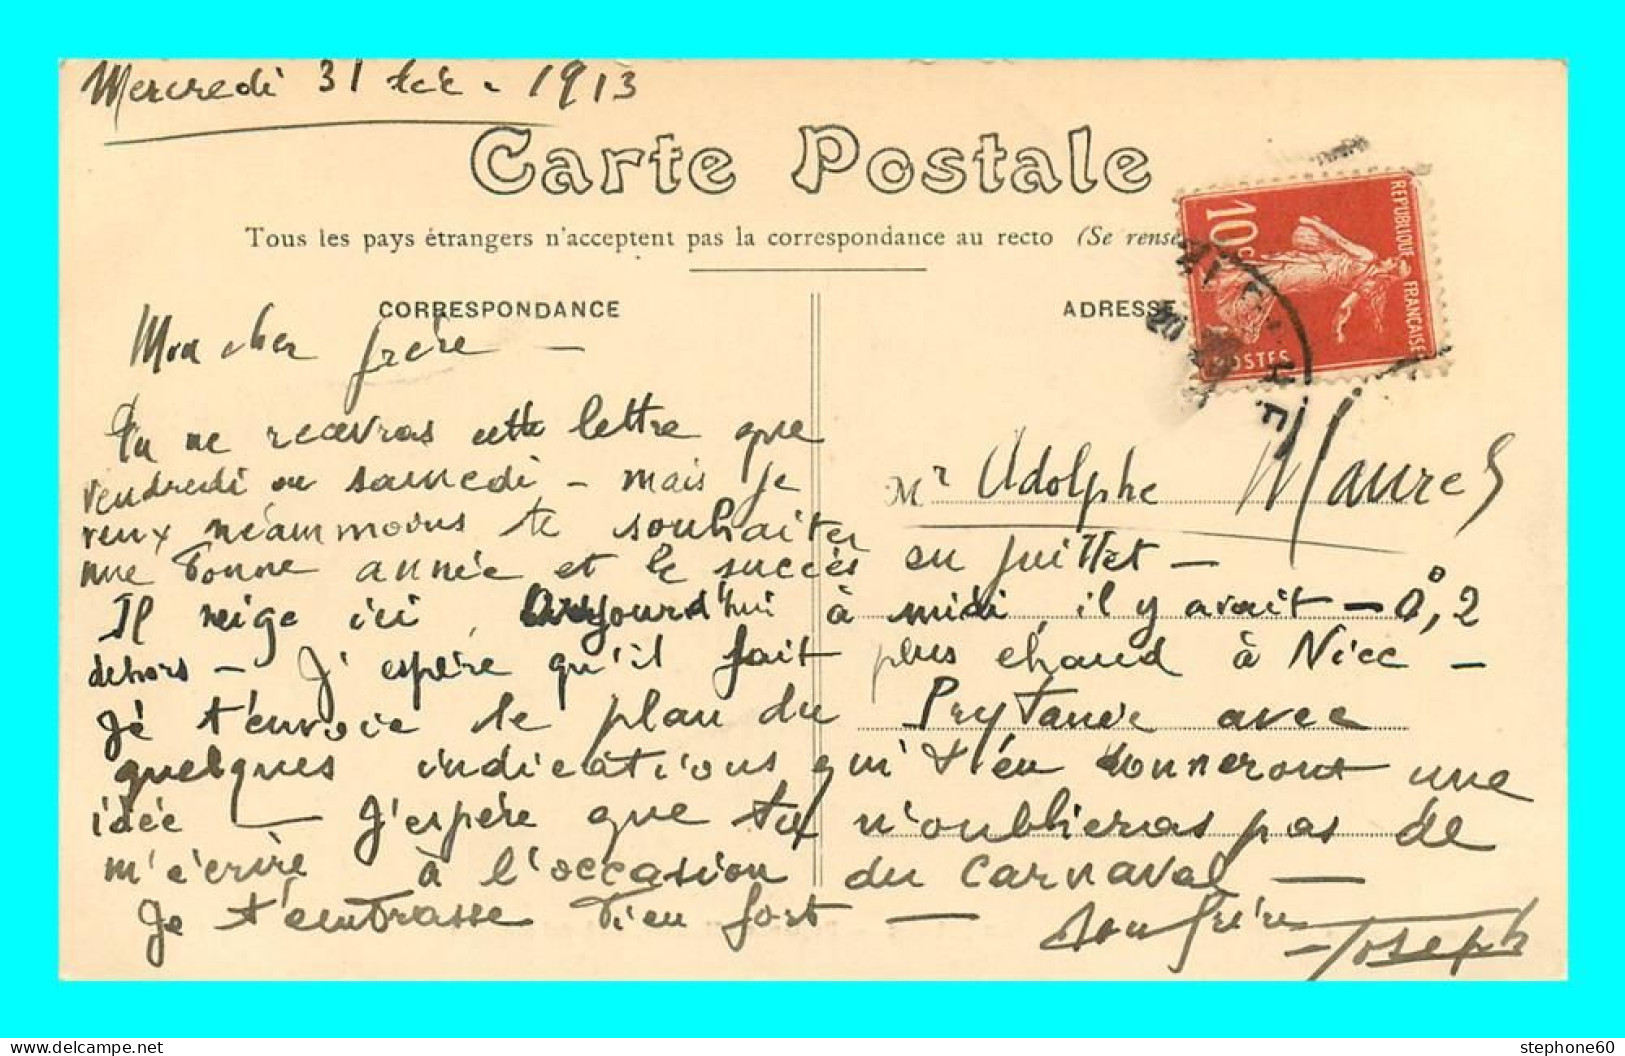 Mercredi 31 Déc. 1913
Carte Postale
Tous les pays étrangers n'acceptent pas la correspondance au recto (Se rense
CORRESPONDANCE
ADRESSE
REPUBLIQUE FRANÇAISE
10c
POSTES
Mon cher frère —
Tu ne recevras cette lettre que
vendredi ou samedi — mais je
veux néammoins te souhaiter
une bonne année et le succès en juillet —
Il neige ici Aujourd'hui à midi il y avait — 0°,2
dehors — J'espère qu'il fait plus chaud à Nice —
Je t'envoie le plan du Prytanée avec
quelques indications qui t'en donneront une
idée — J'espère que tu n'oublieras pas de
m'écrire à l'occasion du Carnaval —
Je t'embrasse bien fort —
Mr Adolphe Maurel
ton frère
Joseph
stephone60